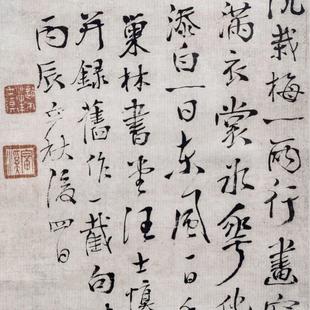 院栽梅一兩行畫空
滿衣裳冰華化
添白一日東風一日
巢林書堂汪士慎
并錄舊作一截句
丙辰立秋後四日